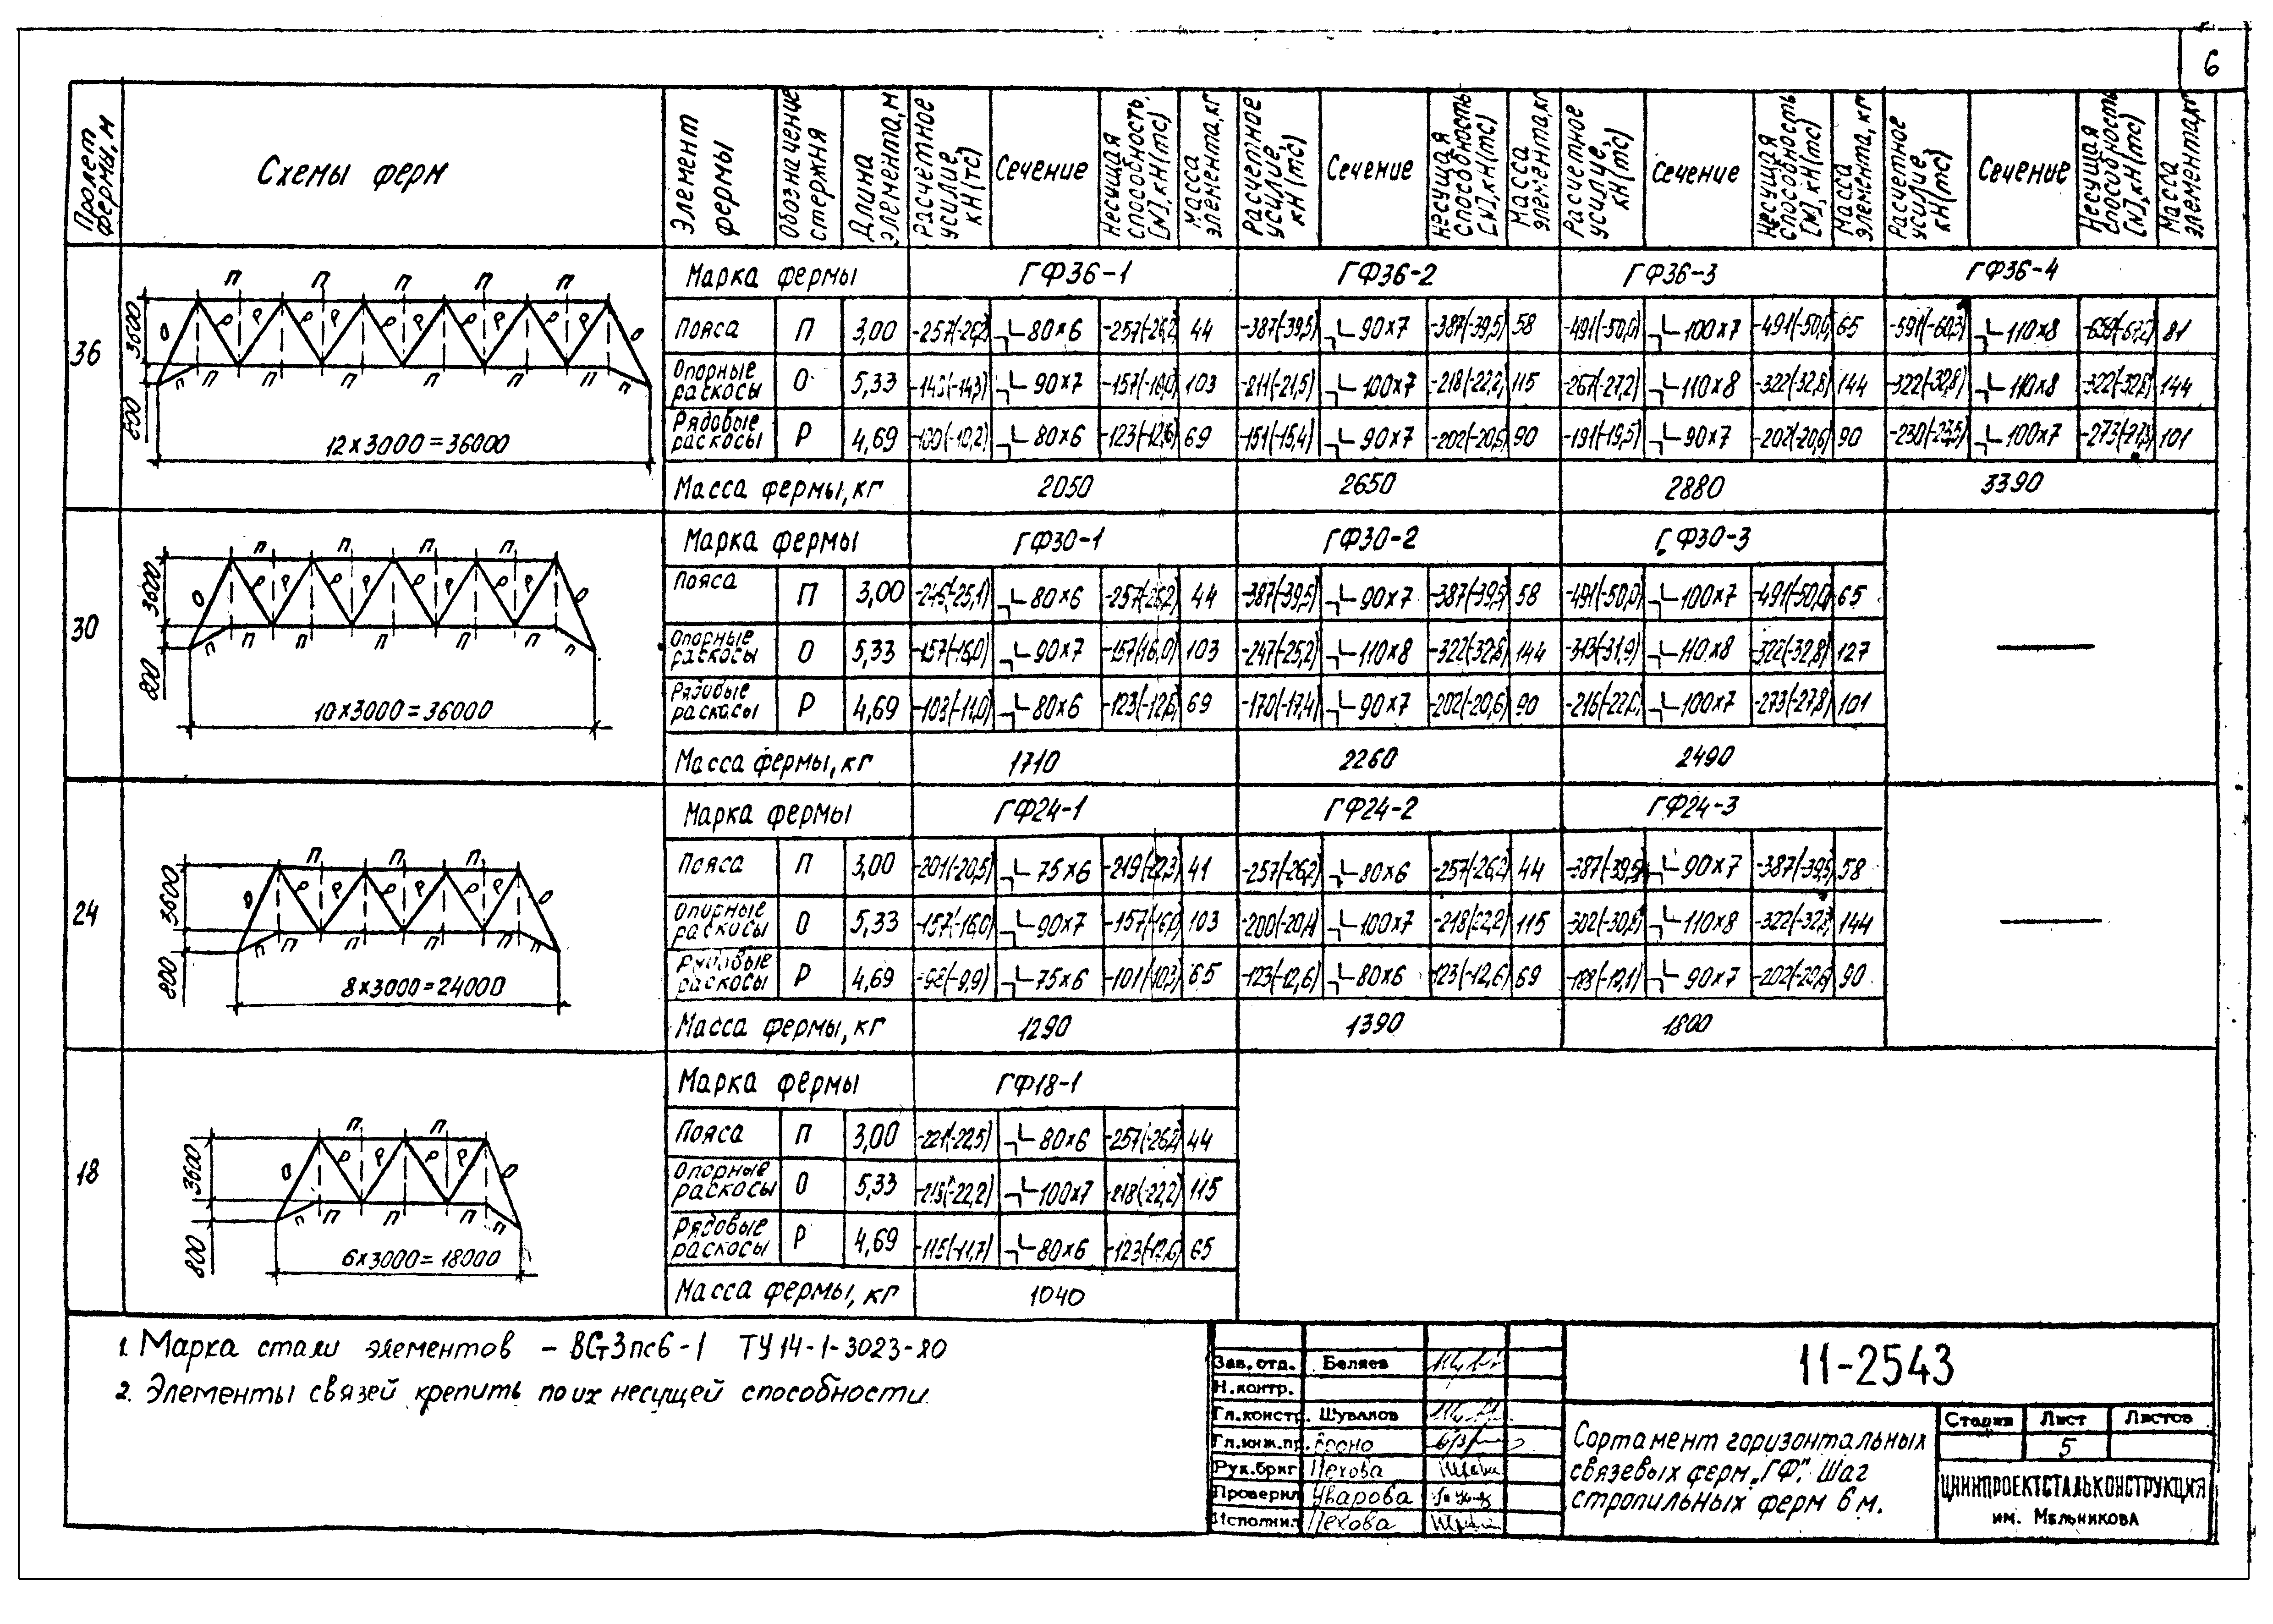 6
Пролет фермы, м
Схемы ферм
Элемент фермы
Обозначение стержня
Длина элемента, м
Расчётное усилие, кН(тс)
Сечение
Несущая способность, [N], кН(тс)
Масса элемента, кг
Расчетное усилие, кН(тс)
Сечение
Несущая способность [N], кН(тс)
Масса элемента, кг
Расчетное усилие, кН(тс)
Сечение
Несущая способность [N], кН(тс)
Масса элемента, кг
Расчетное усилие кН(тс)
Сечение
Несущая способность [N], кН(тс)
Масса элемента, кг
36
3600
800
12×3000=36000
Марка фермы ГФ36-1 ГФ36-2 ГФ36-3 ГФ36-4
Пояса П 3,00 -257(-26,2) 80×6 -257(-26,2) 44 -387(-39,5) 90×7 -387(-39,5) 58 -491(-50,0) 100×7 -491(-50,0) 65 -591(-60,3) 110×8 -659(-67,2) 81
Опорные раскосы О 5,33 90×7 -157(-16,0) 103 -211(-21,5) 100×7 -218(-22,2) 115 -267(-27,2) 110×8 -322(-32,8) 144 -322(-32,8) 110×8 -322(-32,8) 144
Рядовые раскосы Р 4,69 -100(-10,2) 80×6 -123(-12,6) 69 -151(-15,4) 90×7 -202(-20,6) 90 -191(-19,5) 90×7 -202(-20,6) 90 -230(-23,5) 100×7 -273(-27,8) 101
Масса фермы, кг 2050 2650 2880 3390
30
3600
800
10×3000=36000
Марка фермы ГФ30-1 ГФ30-2 ГФ30-3
Пояса П 3,00 -246(-25,1) 80×6 -257(-26,2) 44 -387(-39,5) 90×7 -387(-39,5) 58 -491(-50,0) 100×7 -491(-50,0) 65
Опорные раскосы О 5,33 -157(-16,0) 90×7 -157(16,0) 103 -247(-25,2) 110×8 -322(-32,8) 144 -313(-31,9) 110×8 -322(-32,8) 127
Рядовые раскосы Р 4,69 -108(-11,0) 80×6 -123(-12,6) 69 -170(-17,4) 90×7 -202(-20,6) 90 -216(-22,0) 100×7 -273(-27,8) 101
Масса фермы, кг 1710 2260 2490
24
3600
800
8×3000=24000
Марка фермы ГФ24-1 ГФ24-2 ГФ24-3
Пояса П 3,00 -201(-20,5) 75×6 -219(-22,3) 41 -257(-26,2) 80×6 -257(-26,2) 44 -387(-39,5) 90×7 -387(-39,5) 58
Опорные раскосы О 5,33 -157(-16,0) 90×7 -157(-16,0) 103 -200(-20,4) 100×7 -218(-22,2) 115 -302(-30,8) 110×8 -322(-32,8) 144
Рядовые раскосы Р 4,69 -98(-9,9) 75×6 -101(-10,3) 65 -123(-12,6) 80×6 -123(-12,6) 69 90×7 -202(-20,6) 90
Масса фермы, кг 1290 1390 1800
18
3600
800
6×3000=18000
Марка фермы ГФ18-1
Пояса П 3,00 -221(-22,5) 80×6 -257(-26,2) 44
Опорные раскосы О 5,33 -218(-22,2) 100×7 -218(-22,2) 115
Рядовые раскосы Р 4,69 -115(-11,7) 80×6 -123(-12,6) 65
Масса фермы, кг 1040
1. Марка стали элементов - ВСт3пс6-1 ТУ14-1-3023-80
2. Элементы связей крепить по их несущей способности.
Зав. отд. Беляев
Н.контр.
Гл.констр. Шувалов
Гл.инж.пр.
Рук.бриг. Пехова
Проверил Уварова
Исполнил Пехова
11-2543
Сортамент горизонтальных
связевых ферм „ГФ". Шаг
стропильных ферм 6м.
Стадия Лист Листов
5
ЦНИИПРОЕКТСТАЛЬКОНСТРУКЦИЯ
им. Мельникова